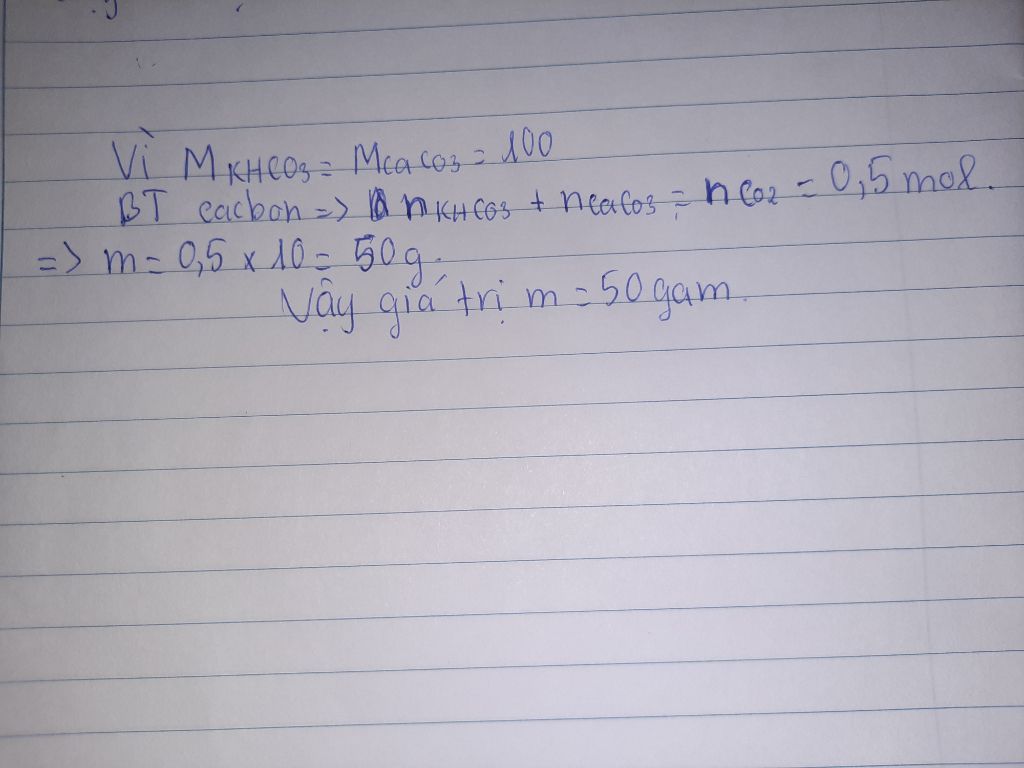 Vì M KHCO3 = MCaCO3 = 100
BT cacbon => n KHCO3 + nCaCO3 = nCO2 = 0,5 mol.
=> m = 0,5 x 10 = 50g.
Vậy giá trị m = 50 gam.